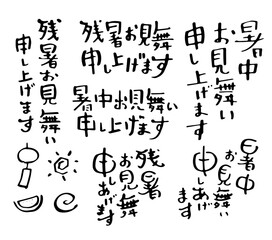 暑中
お見舞い
申し上げます
残暑お見舞
申し上げます
残暑お見舞い
申し上げます
暑中お見舞い
申し上げます
暑中
お見舞い
申しあげます
残暑
お見舞
申しあげます